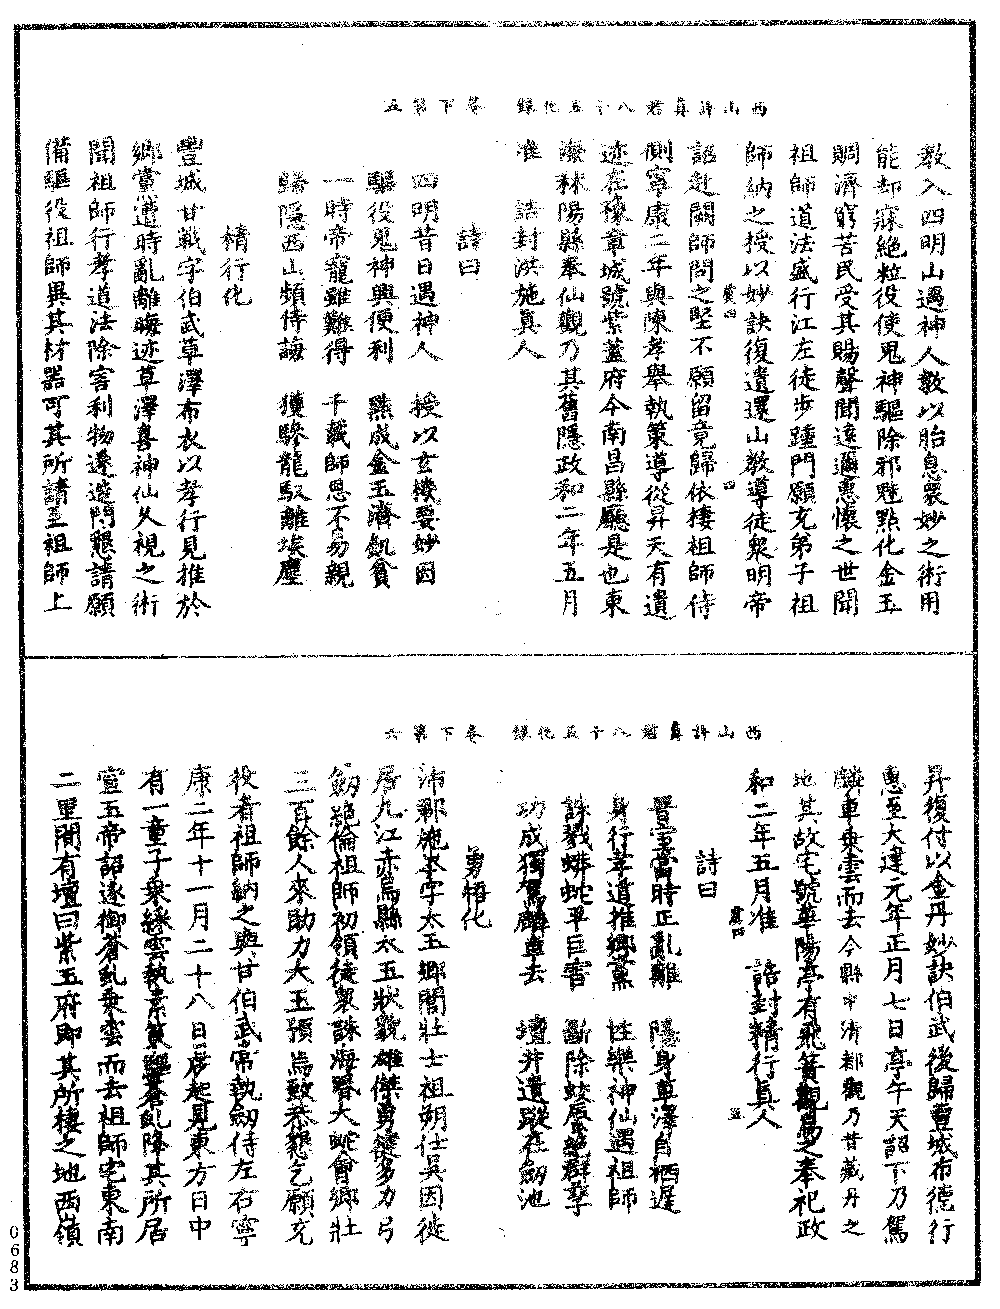 西山許真君八十五化錄　卷下第五
教入四明山遇神人教以胎息眾妙之術用
能却寐絶粒役使鬼神驅除邪魅點化金玉
賙濟窮苦民受其賜聲聞遠邇惠懷之世聞
祖師道法盛行江左徒步踵門願充弟子祖
師納之授以妙訣復遣還山教導徒衆明帝
詔赴闕師問之堅不願留竟歸依棲祖師侍
側寧康二年與陳孝舉執策導從昇天有遺
迹在豫章城號紫蓋府今南昌縣廳是也東
海秣陽縣奉仙觀乃其舊隱政和二年五月
准　誥封洪施真人
詩曰
四明昔日遇神人　授以玄機要妙因
驅役鬼神興便利　點成金玉濟飢貧
一時帝寵雖難得　千載師恩不易親
歸隱西山頻侍誨　獲驂龍馭離埃塵
精行化
豐城甘戰字伯武草澤布衣以孝行見推於
鄉黨遭時亂離晦迹草澤喜神仙久視之術
聞祖師行孝道法除害利物遂造門懇請願
備驅役祖師異其材器可其所請至祖師上
西山許真君八十五化錄　卷下第六
昇復付以金丹妙訣伯武後歸豐城布德行
惠至大建元年正月七日亭午天詔下乃駕
麟車乘雲而去今縣中清都觀乃昔藏丹之
地其故宅號華陽亭有飛簣觀烏之奉祀政
和二年五月准　誥封精行真人
詩曰
晉室當時正亂離　隱身草澤自栖遲
身行孝道推鄉黨　性樂神仙遇祖師
誅戮蛖蛇平巨害　斷除蛟蜃絶群孽
功成獨駕麟車去　壇井遺蹤在劒池
勇悟化
沛郡施岑字太玉鄉閭壯士祖朔仕吳因徙
居九江赤烏縣太玉狀貌雄傑勇健多力弓
劒絶倫祖師初領徒衆誅海昏大蛇會鄉壯
三百餘人來助力太玉預焉致恭懇乞願充
役者祖師納之與甘伯武常執劒侍左右寧
康二年十一月二十八日晨起見東方日中
有一童子乘緑雲執素策驅蒼虬降其所居
宣五帝詔遂御蒼虬乘雲而去祖師宅東南
二里間有壇曰紫玉府即其所棲之地西嶺
0683